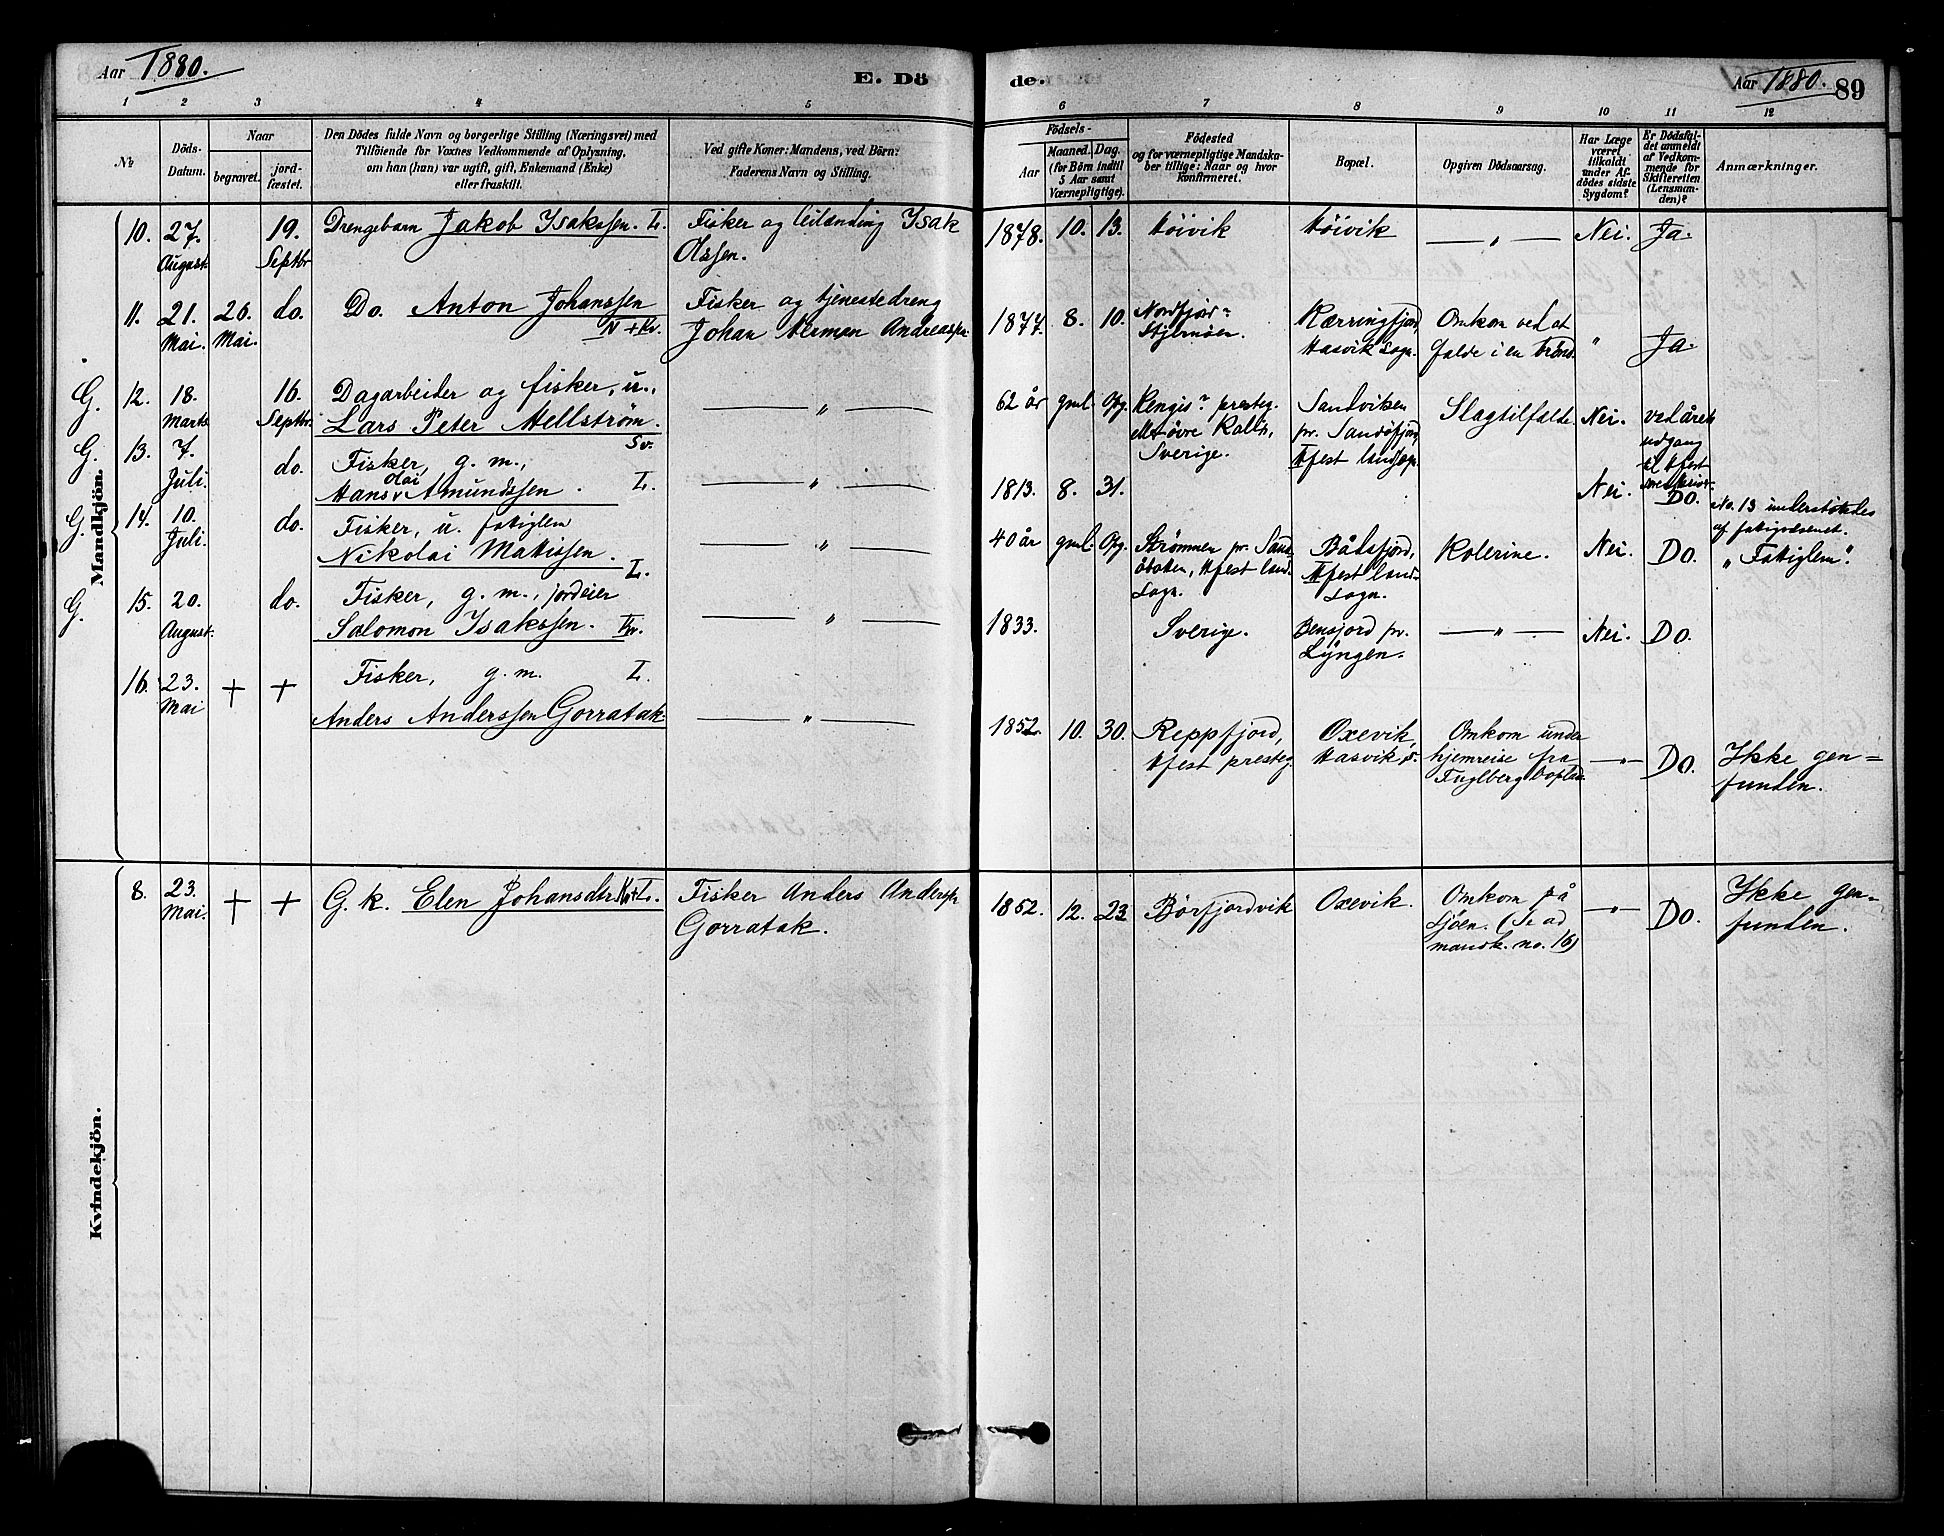 Aar 1880. E. Dö de. Aar 1880. 89
1 2 3 4 5 6 7 8 9 10 11 12
№
Döds-
Datum.
Naar
begravet.
jord-
fæstet.
Den Dödes fulde Navn og borgerlige Stilling (Næringsvei) med
Tilföiende for Voxnes Vedkommende af Oplysning,
om han (hun) var ugift, gift, Enkemand (Enke)
eller fraskilt.
Ved gifte Koner: Mandens, ved Börn:
Faderens Navn og Stilling.
Födsels-
Aar
Maaned. Dag.
(for Börn indtil
5 Aar samt
Værnepligtige).
Födested
og for værnepligtige Mandska-
ber tillige: Naar og hvor
konfirmeret.
Bopæl.
Opgiven Dödsaarsag.
Har Læge
været
tilkaldt
under Af-
dödes sidste
Sygdom?
Er Dödsfal-
det anmeldt
af Vedkom-
mende for
Skifteretten
(Lensman-
den)?
Anmærkninger.
Mandkjön.
10. 27. August. 19. Septbr. Drengebarn Jakob Isakssen. L. Fisker og leilænding Isak
Olssen.
1878. 10. 13. Höivik Höivik — " — Nei. Ja.
11. 21. Mai. 26. Mai. do. Do. Anton Johanssen
N + Kv.
Fisker og tjenestedreng
Johan Herman Andreassen
1877. 8. 10. Nordfjord
Stjernöen.
Kærringfjord,
Hasvik sogn.
Omkom ved at
falde i en brönd.
" Ja.
G. 12. 18. Marts 16. Septbr. Dagarbeider og fisker, u.,
Lars Peter Hellström.
Sv.
— " —
62 år gml. Opg. Kengis presteg.
Sverige.
Sandviken
pr. Sandöfjord,
Hfest landsogn.
Slagtilfælde. Nei. ved årets
udgang
G. 13. 7. Juli. do. Fisker, g. m.,
Hans Olai Amundssen. L.
— " —
1813. 8. 31. Nei. Do. No. 13 understöttedes
af fattigvæsenet.
G. 14. 10. Juli. do. Fisker, u. fattiglem
Nikolai Mattissen. L.
— " —
40 år gml. Opg. Strömmen pr. Sand-
öbotten, Hfest land-
sogn.
Bådsfjord,
Hfest land-
sogn.
Kolerine. Nei. Do. „Fattiglem".
G. 15. 20. August. do. Fisker, g. m., jordeier
Salomon Isakssen. Kv.
— " —
1833. Sverige. Bensjord pr.
Lyngen. — " — Nei. Do.
16. 23. Mai + + Fisker, g. m. L.
Anders Anderssen Gorratak.
— " —
1852. 10. 30. Reppfjord,
Hfest presteg.
Oxevik,
Hasvik s.
Omkom under
hjemreise fra
Fuglberg
— " — Do. Ikke gen-
funden.
Kvindekjön.
8. 23. Mai. + + G. k. Elen Johansdtr. Kv + L. Fisker Anders Anderssen
Gorratak.
1852. 12. 23. Börfjordvik Oxevik. Omkom på
Sjöen. (Se ad
mansk. no. 16)
— " — Do. Ikke gen-
funden.